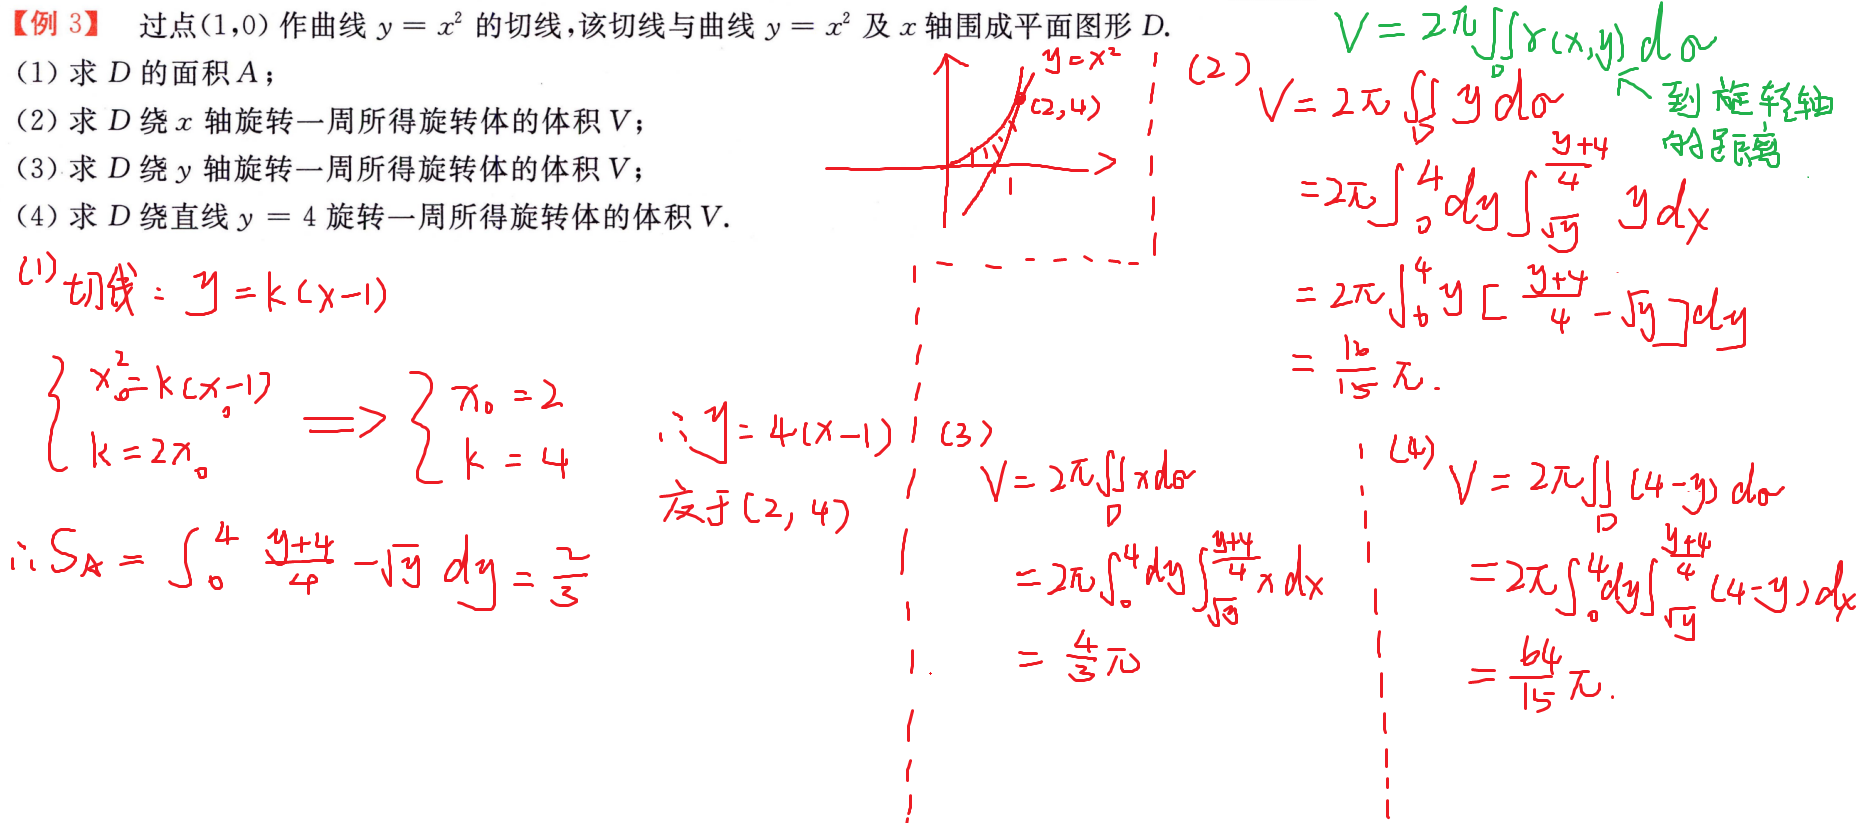 【例 3】 过点(1,0) 作曲线 y = x² 的切线,该切线与曲线 y = x² 及 x 轴围成平面图形 D.
(1) 求 D 的面积 A;
(2) 求 D 绕 x 轴旋转一周所得旋转体的体积 V;
(3) 求 D 绕 y 轴旋转一周所得旋转体的体积 V;
(4) 求 D 绕直线 y = 4 旋转一周所得旋转体的体积 V.
y=x²
(2,4)
1
(1) 切线: y=k(x-1)
{ x₀²=k(x₀-1)
k=2x₀
⟹ { x₀=2
k=4
∴ y=4(x-1)
交于(2,4)
∴ S_A = ∫₀⁴ (y+4)/4 - √y dy = 2/3
V=2π∬_D r(x,y) dσ
↖ 到旋转轴
的距离
(2) V=2π∬_D y dσ
=2π∫₀⁴ dy ∫_{√y}^{(y+4)/4} y dx
=2π∫₀⁴ y[(y+4)/4 - √y]dy
= 16/15 π.
(3)
V=2π∬_D x dσ
=2π∫₀⁴ dy ∫_{√y}^{(y+4)/4} x dx
= 4/3 π
(4) V=2π∬_D (4-y) dσ
=2π∫₀⁴ dy ∫_{√y}^{(y+4)/4} (4-y) dx
= 64/15 π.